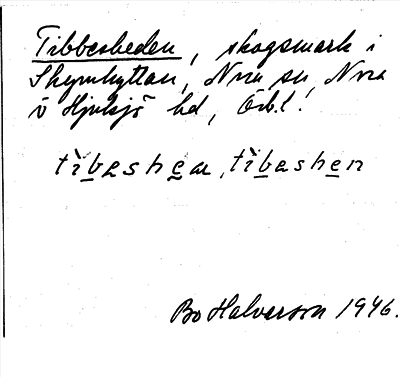 Tibbesheden, skogsmark i
Skymhyttan, Nora sn, Nora
o Hjulsjö hd, Örb.l!
tìbashear, tìbashen
Bo Halvarson 1946.